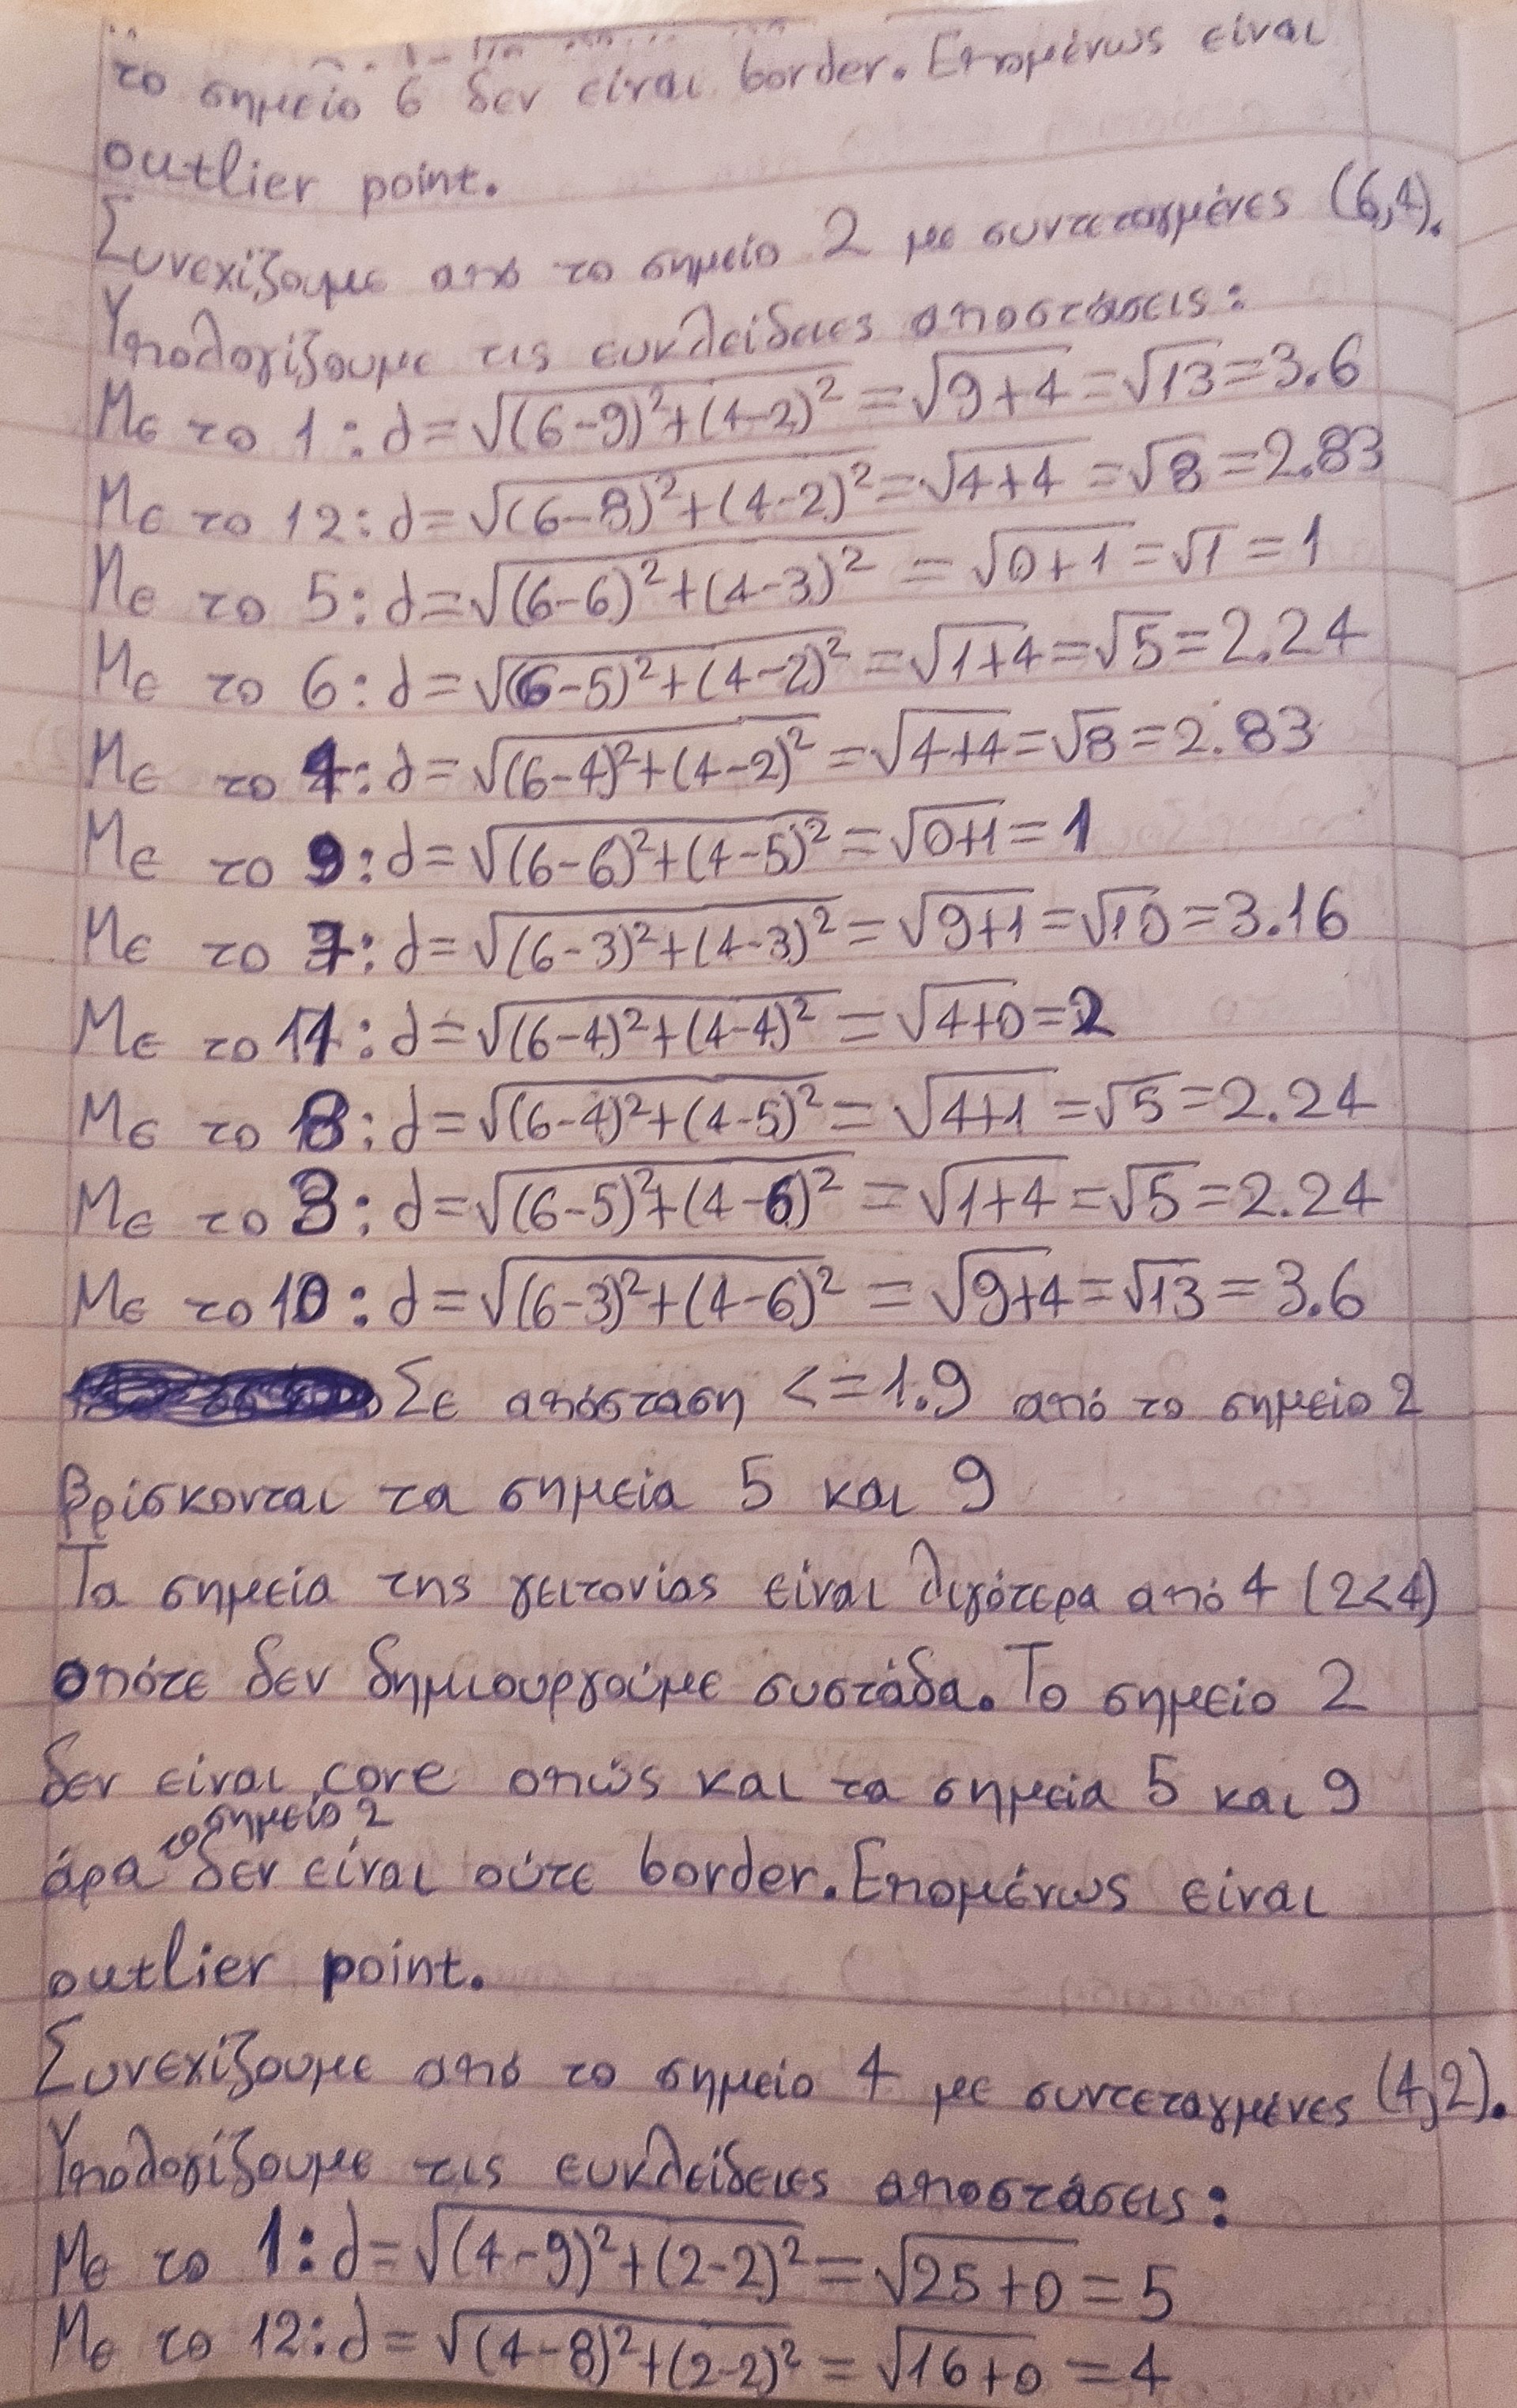 το σημείο 6 δεν είναι border. Επομένως είναι
outlier point.
Συνεχίζουμε από το σημείο 2 με συντεταγμένες (6,4).
Υπολογίζουμε τις ευκλείδειες αποστάσεις:
Με το 1: d=√((6-9)²+(4-2)²)=√(9+4)=√13=3.6
Με το 12: d=√((6-8)²+(4-2)²)=√(4+4)=√8=2.83
Με το 5: d=√((6-6)²+(4-3)²)=√(0+1)=√1=1
Με το 6: d=√((6-5)²+(4-2)²)=√(1+4)=√5=2.24
Με το 4: d=√((6-4)²+(4-2)²)=√(4+4)=√8=2.83
Με το 9: d=√((6-6)²+(4-5)²)=√(0+1)=1
Με το 7: d=√((6-3)²+(4-3)²)=√(9+1)=√10=3.16
Με το 11: d=√((6-4)²+(4-4)²)=√(4+0)=2
Με το 8: d=√((6-4)²+(4-5)²)=√(4+1)=√5=2.24
Με το 3: d=√((6-5)²+(4-6)²)=√(1+4)=√5=2.24
Με το 10: d=√((6-3)²+(4-6)²)=√(9+4)=√13=3.6
Σε απόσταση <=1.9 από το σημείο 2
βρίσκονται τα σημεία 5 και 9
Τα σημεία της γειτονίας είναι λιγότερα από 4 (2<4)
οπότε δεν δημιουργούμε συστάδα. Το σημείο 2
δεν είναι core οπώς και τα σημεία 5 και 9
άρα το σημείο 2 δεν είναι ούτε border. Επομένως είναι
outlier point.
Συνεχίζουμε από το σημείο 4 με συντεταγμένες (4,2).
Υπολογίζουμε τις ευκλείδειες αποστάσεις:
Με το 1: d=√((4-9)²+(2-2)²)=√(25+0)=5
Με το 12: d=√((4-8)²+(2-2)²)=√(16+0)=4